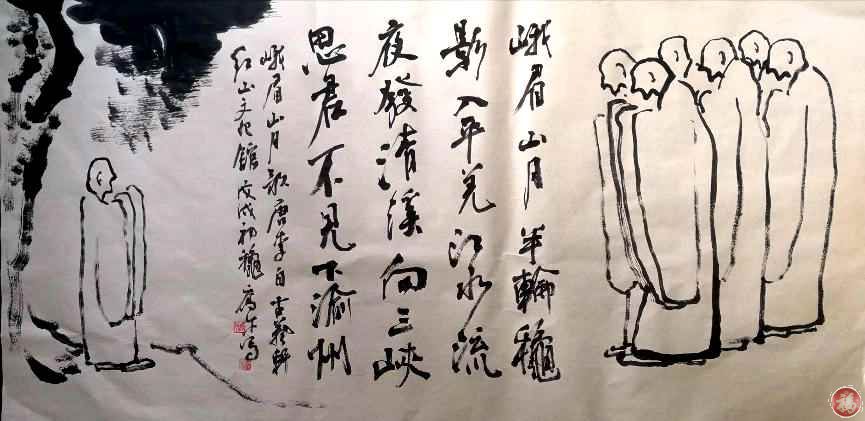 峨眉山月半輪龝
影入平羌江水流
夜發清溪向三峽
思君不見下渝州
峨眉山月歌唐李白藝軒
紅山文化館戊戌初龝
福